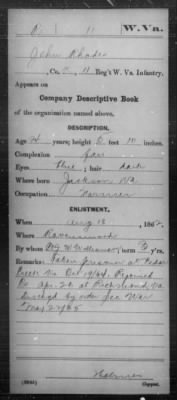 R | 11 | W. Va.
John Rhodes
, Co. , 11 Reg't W. Va. Infantry.
Appears on
Company Descriptive Book
of the organization named above.
DESCRIPTION.
Age 24 years; height 5 feet 10 inches.
Complexion fair
Eyes blue; hair dark
Where born Jackson Va
Occupation Farmer
ENLISTMENT.
When Aug 13, 1862.
Where Ravenswood
By whom ; term 3 y'rs.
Remarks: Taken prisoner at Cedar
Creek Va Oct 19/64. Rejoined
Co. Apr. at Richmond Va
Dischgd by order Sec War
May 29/65
Copyist.